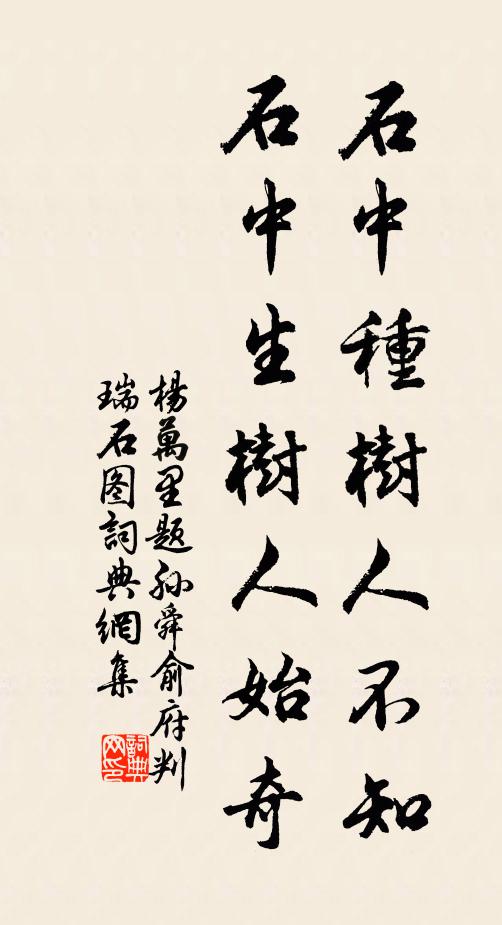 石中種樹人不知
石中生樹人始奇
楊萬里題孙舜俞府判
瑞石图詞典網集
詞典
网印